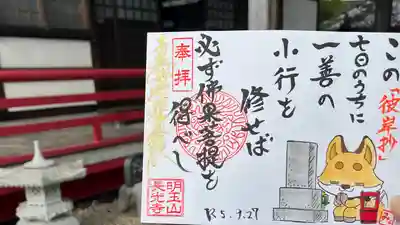 この「彼岸抄」
七日のうちに
一善の
小行を
修せば
必ず佛果菩提を
得べし
奉拝
明玉山
長光寺
R5.9.27